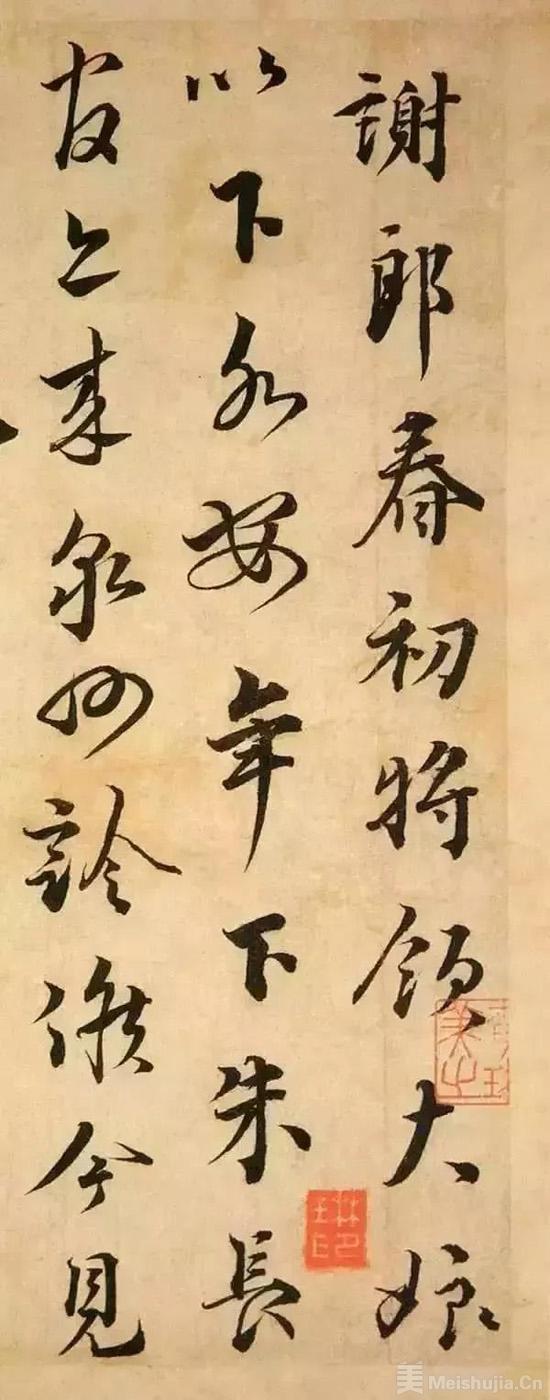 謝郎春初將領大娘
以下各安年下朱長
官亦來泉州診候今見
美 Meishujia.Cn